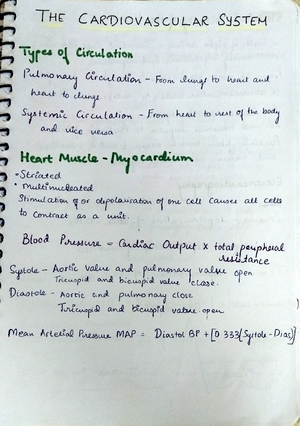 THE CARDIOVASCULAR SYSTEM
Types of Circulation
Pulmonary Circulation - From lungs to heart and
heart to lungs.
Systemic Circulation - From heart to rest of the body
and vice versa
Heart Muscle - Myocardium
• Striated
• Multinucleated
Stimulation of or depolarisation of one cell causes all cells
to contract as a unit.
Blood Pressure = Cardiac Output × total peripheral
resistance
Systole - Aortic valve and pulmonary valve open
Tricuspid and bicuspid valve close.
Diastole - Aortic and pulmonary close
Tricuspid and bicuspid valve open
Mean Arterial Pressure MAP = Diastol BP + [0.333(Systole - Dias)]